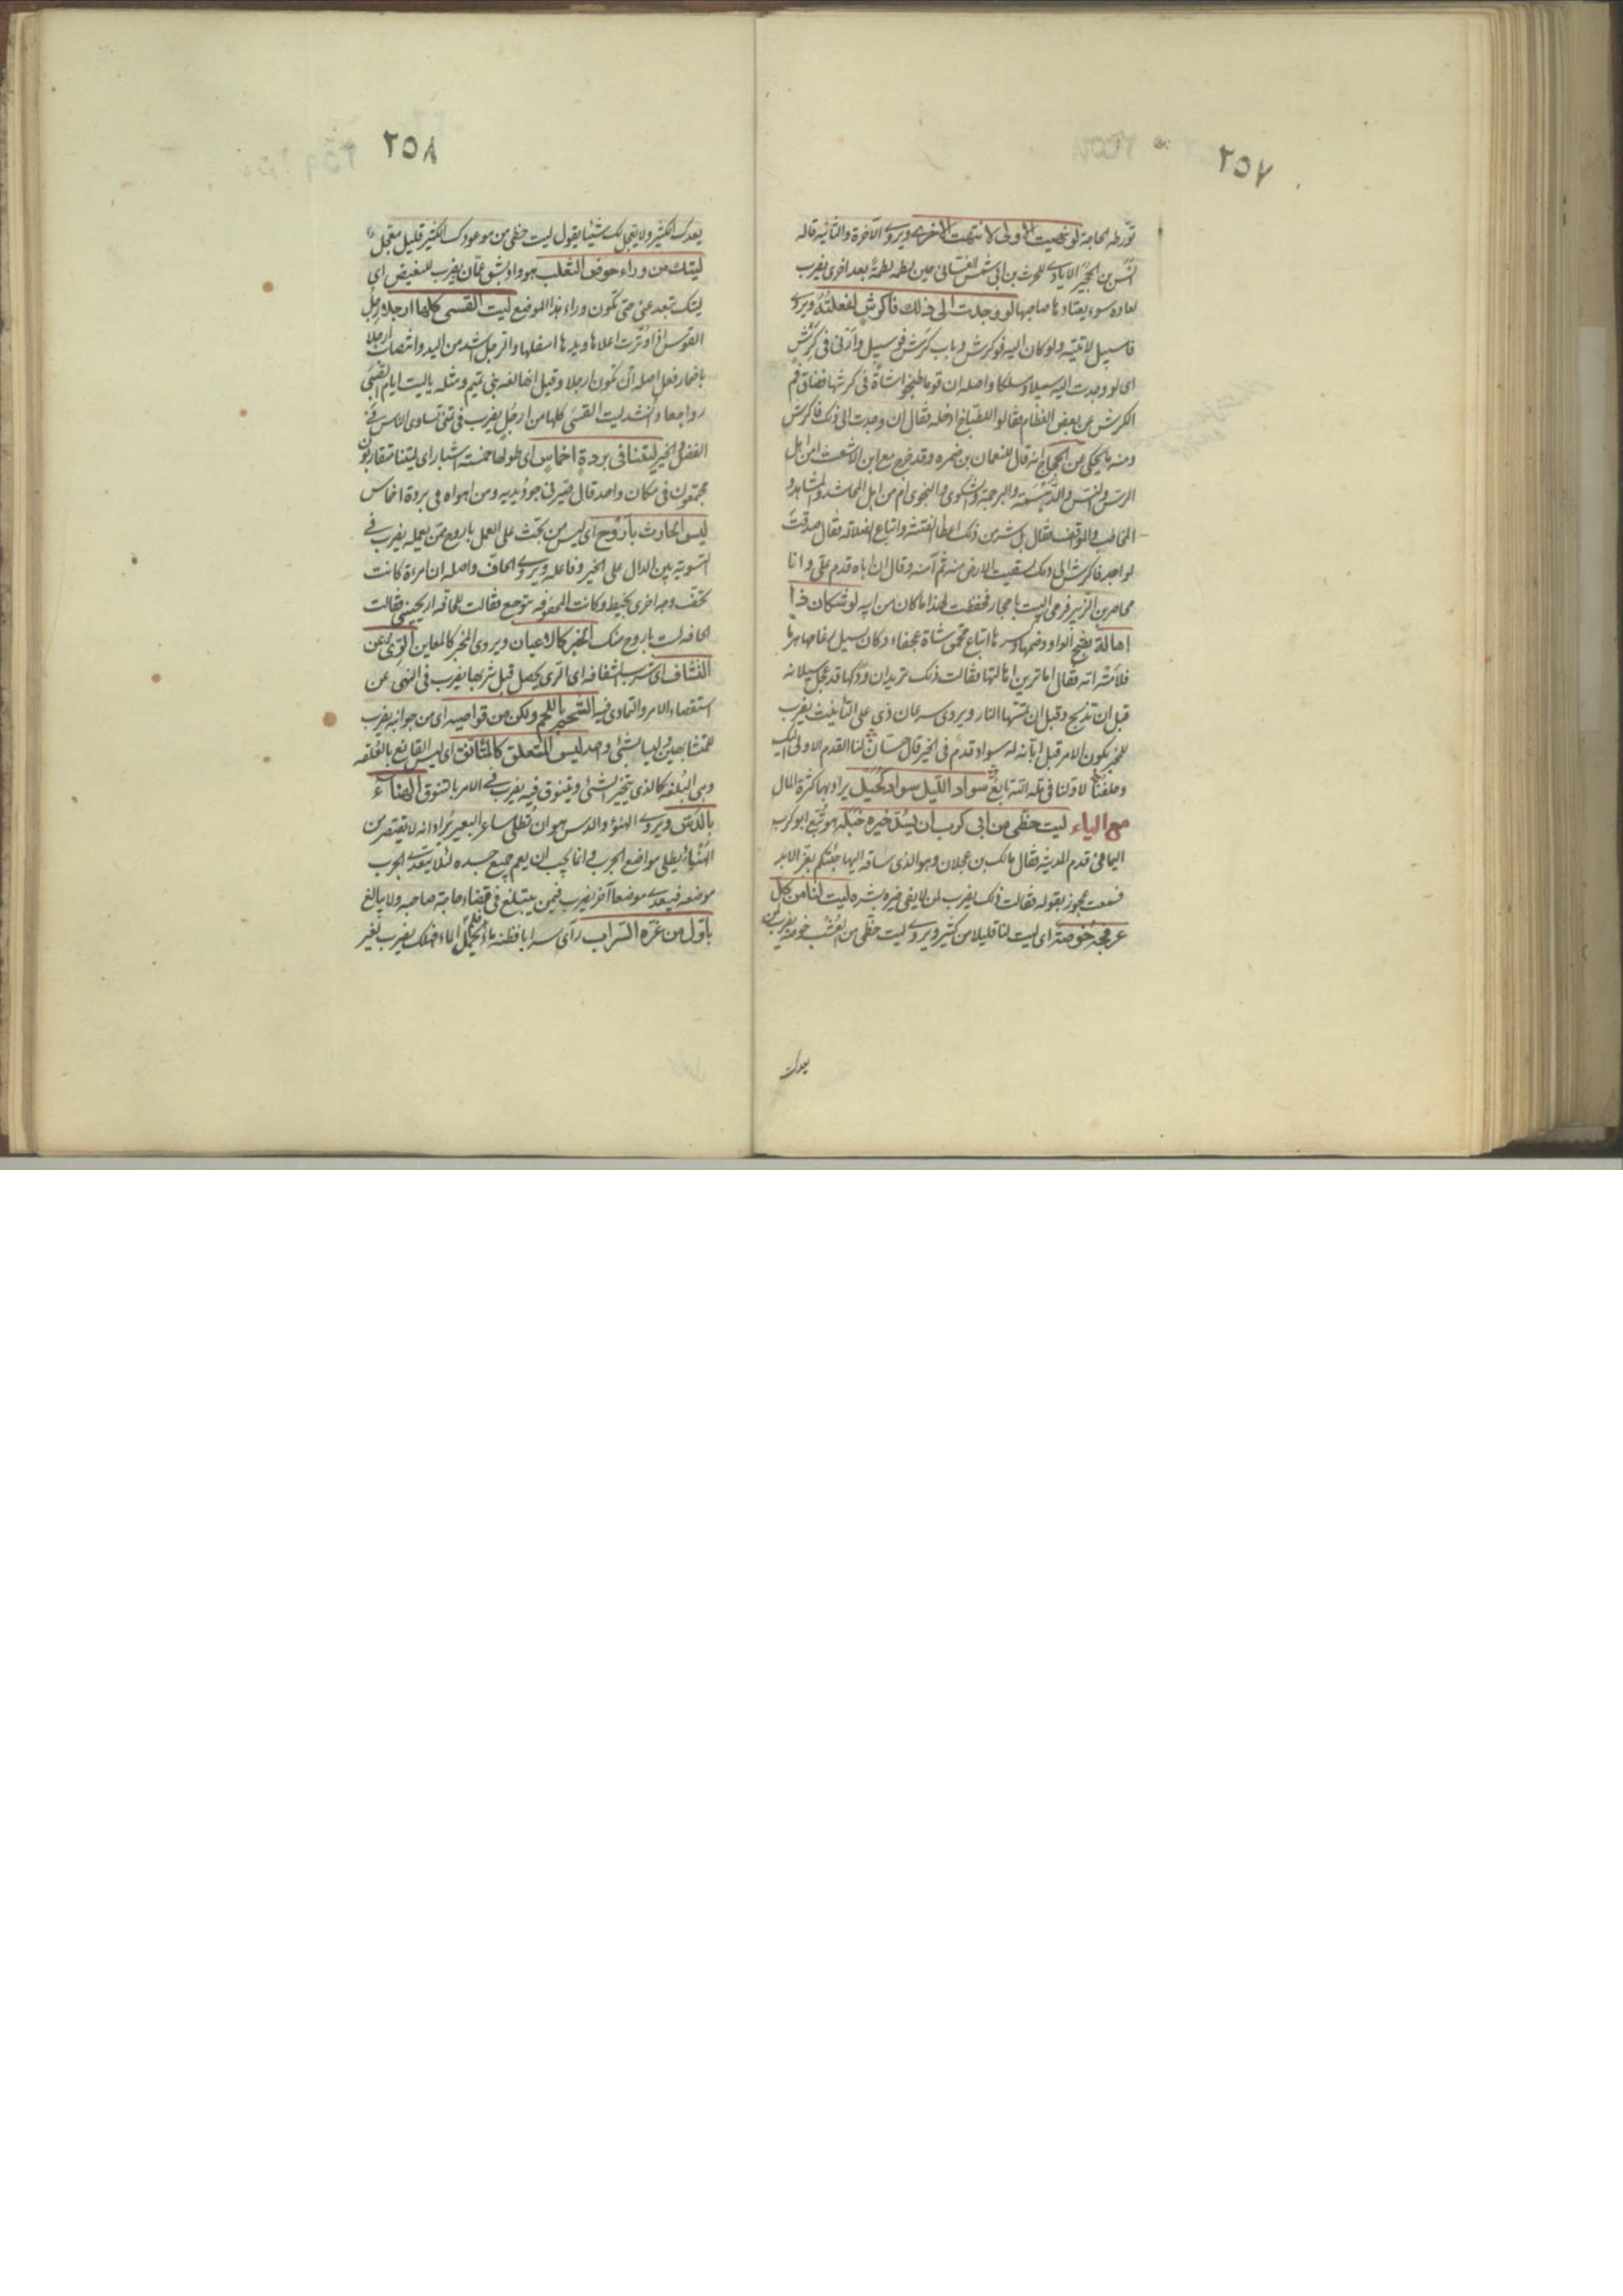 ٢٥٧
تورطه الحاجة لو نهيت الاولى لانتهت الاخرى ويروى الآخرة والثانية قاله
انس بن الحجير الايادى للحرث بن ابى شمر الغسانى حين لطمه لطمة بعد اخرى يضرب
لعادة سوء يعتادها صاحبها لو وجدت الى ذلك فاكرش لفعلته ويروى
فاسبيل لاتيته ولو كان اليه فوكرش وباب كرش فوسبيل وادنى فى كرش
اى لو وجدت اليه سبيلا ومسلكا واصله ان قوما طبخوا شاة فى كرشها فضاق فم
الكرش عن بعض العظام فقالوا للطباخ ادخله فقال ان وجدت الى ذلك فاكرش
ومنه ما يحكى عن الحجاج انه قال للنعمان بن ضمره وقد خرج مع ابن الاشعث امن اهل
الرس والنس والدهسمة والبرجمة والشكوى والنجوى ام من اهل المحاشد والمشاهد و
المخاطب والمواقف فقال بل شر من ذلك اعطا الفتنة واتباع الضلالة فقال صدقت
لو اجد فاكرش الى دمك لسقيت الارض منه ثم آمنه وقال ان اباه قدم على وانا
محاصر بن الزبير فرمى البيت باحجار فحفظت لهذا ما كان من ابيه لو شكان ذا
اهالة بفتح الواو وضمها وكسرها ابتاع حمق شاة عجفاء وكان يسيل رغامها هزلا
فلامته امه فقال اما ترين اهالتها فقالت ذلك تريد ان ودكها قد عجل سيلانه
قبل ان تذبح وقبل ان تمسها النار ويروى سرعان ذى على التانيث يضرب
للخبر يكون الامر قبل ابانه له سواد قدم فى الخير قال حسان لنا القدم الاولى اليك
وخلفنا لاولنا فى ملة الله تابع سواد الليل سواد كحيل يراد بها كثرة المال
مع الياء ليت حظى من ابى كرب ان يسد خيره خبله هو تبع ابو كرب
اليمانى قدم المدينة فقال مالك بن عجلان وهو الذى ساقه اليها جئتكم بعز الابد
فسمعت عجوز بقوله فقالت ذلك يضرب لمن لا يفى خيره بشره ليت لنا من كل
عرفجة خوصة اى ليت لنا قليلا من كثير ويروى ليت حظى من العشب خوصه يضرب لمن
يعدك
٢٥٨
يعدك الكثير ولا يعجل لك شيئا يقول ليت حظى من موعودك الكثير قليل معجل
ليتك من وراء حوض الثعلب هو واد بشق عمان يضرب للبغيض اى
ليتك تبعد عنى حتى تكون وراء هذا الموضع ليت القسى كلها ارجلا رجل
القوس اذا وترت اعلاها ويدها اسفلها والرجل اشد من اليد وانتصاب ارجلا
باضمار فعل اصله ان تكون ارجلا وقيل انها لغة بنى تميم ومثله ياليت ايام الصبى
رواجعا وانشد ليت القسى كلها من ارجل يضرب فى تمنى تساوى الناس فى
الفضل والخير ليتنا فى بردة اخماس اى طولها خمسة اشبار اى ليتنا متقاربون
مجتمعون فى مكان واحد قال صيرنى جود يديه ومن اهواه فى بردة اخماس
ليس الحادث باروح اى ليس من يحث على العمل باروع ممن يعمله يضرب فى
التسوية بين الدال على الخير وفاعله ويروى الحاف واصله ان امرءة كانت
تحف وجه اخرى بخيط وكانت المحفوفه تتوجع فقالت للحافه اريحينى فقالت
الحافه لست باروح منك الخبر كالاعيان ويروى المخبر كالمعاين الرى عن
التشاف اى شرب الشفافه اى الرى يحصل قبل شربها يضرب فى النهى عن
استقصاء الامر والتمادى فيه الشحم باللحم ولكن من قواصيه اى من جوانبه يضرب
للمتشابهين وليسا بشئ واحد ليس المتعلق كالمتانق اى ليس القانع بالعلقه
وهى البلغه كالذى يتخير الشئ ويتنوق فيه يضرب فى الامر بالتنوق الهناء
بالدس ويروى الهنؤ والدس هو ان تطلى مساعر البعير يراد انه لا يقتصر من
الهناء يطلى مواضع الجرب وانما يجب ان يعم جميع جسده لئلا يتعدى الجرب
موضعه فيعدى موضعا آخر يضرب فيمن يتبلغ فى قضاء حاجة صاحبه ولا يبالغ
باول من غره السراب راى سرابا فظنه ماء فلم يحمل الماء فهلك يضرب لغير